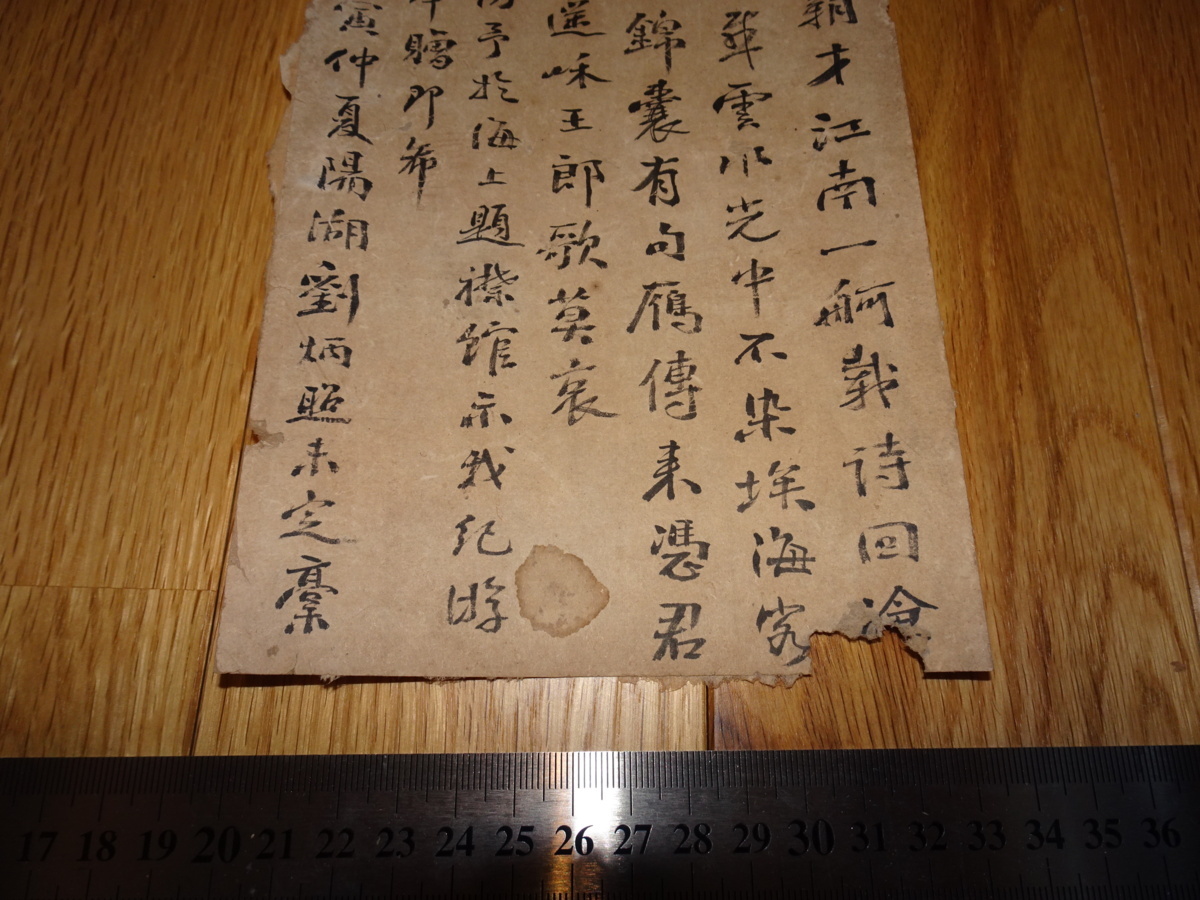 才江南一舸載詩回
雲水光中不染埃海客
錦囊有句雁傳來憑君
遥 王郎歌莫哀
予於海上題襟館示我紀游
贈即希
寅仲夏陽湖劉炳照未定稾
17 18 19 20 21 22 23 24 25 26 27 28 29 30 31 32 33 34 35 36